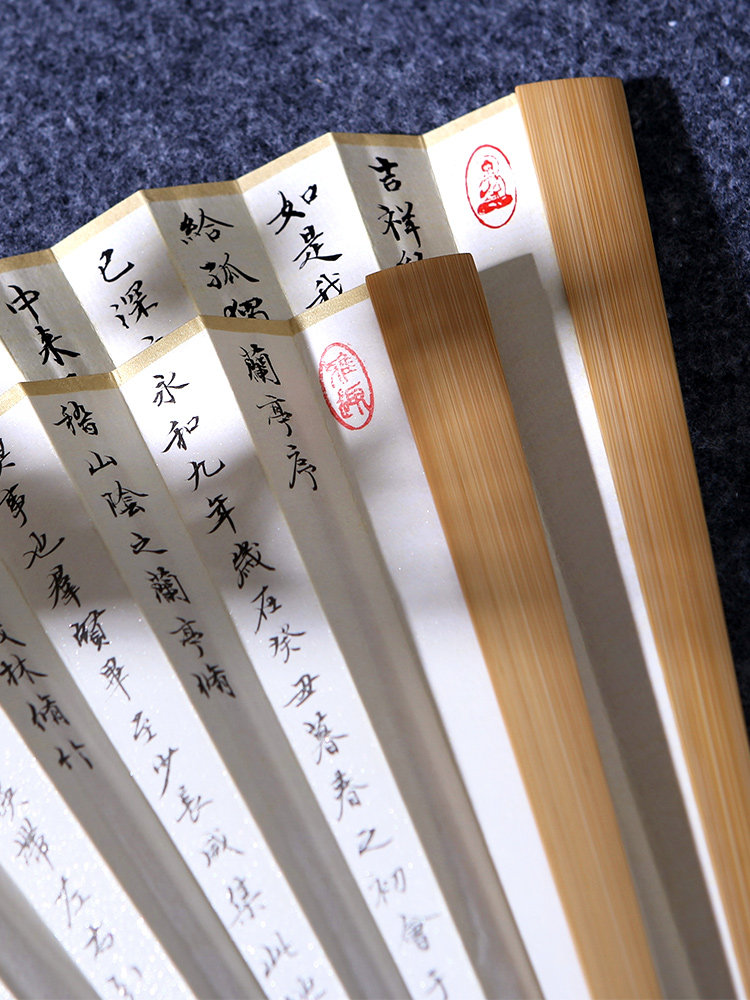 吉祥
如是我
給孤獨
已深
中来
雅趣
蘭亭序
永和九年歲在癸丑暮春之初會于
稽山陰之蘭亭脩
事也羣賢畢至少長咸集此地
林脩竹
帶左右引